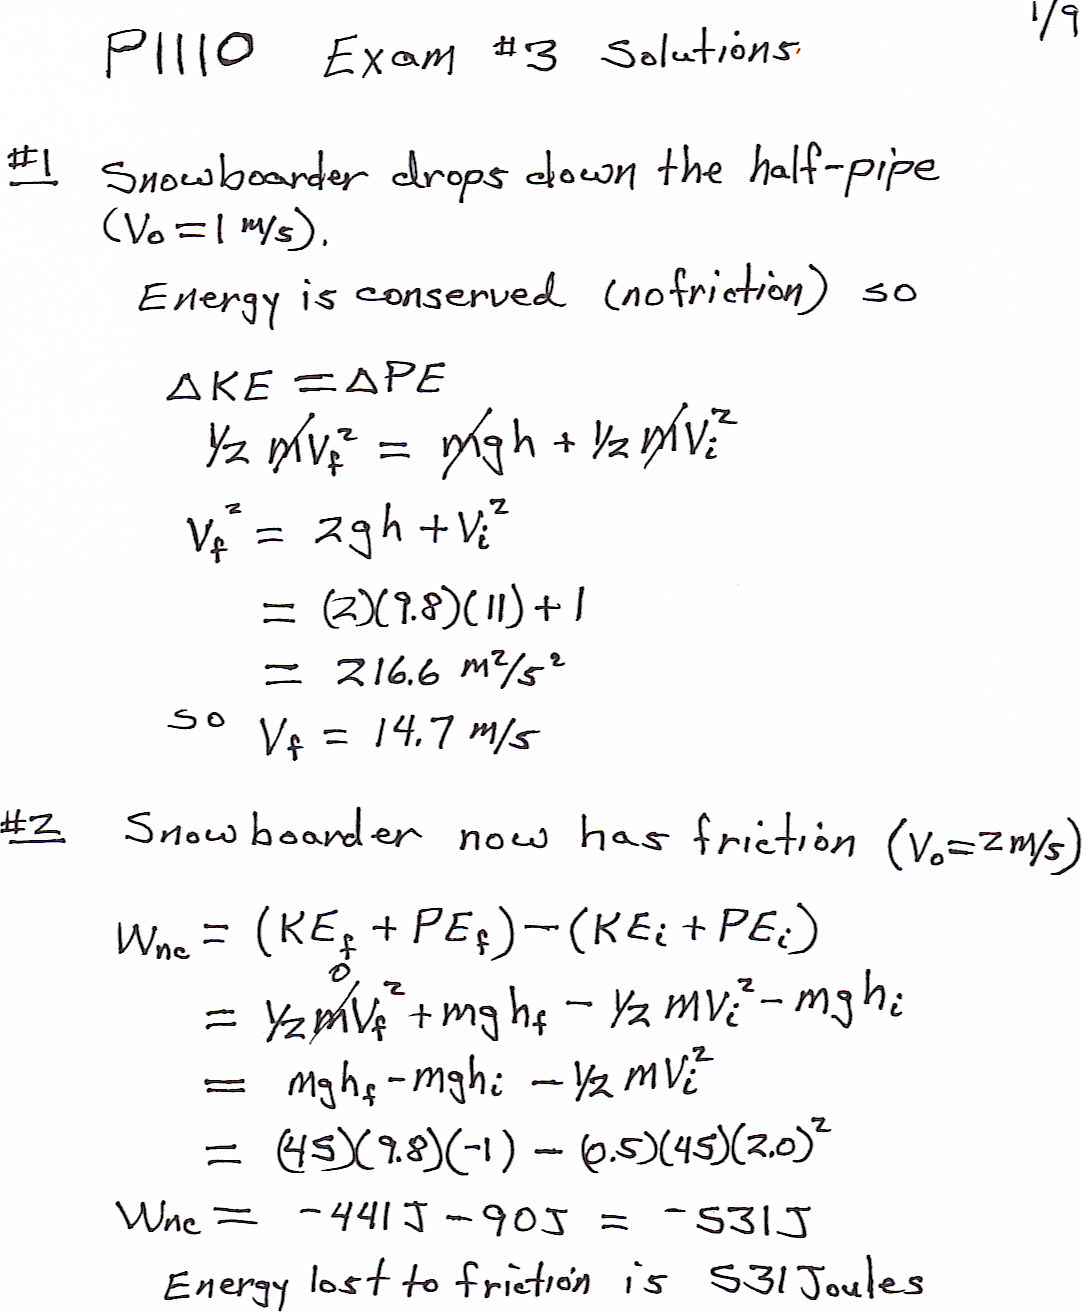 1/9
P1110 Exam #3 Solutions
#1 Snowboarder drops down the half-pipe
(V₀ = 1 m/s).
Energy is conserved (no friction) so
ΔKE = ΔPE
1/2 mV_f² = mgh + 1/2 mV_i²
V_f² = 2gh + V_i²
= (2)(9.8)(11) + 1
= 216.6 m²/s²
so V_f = 14.7 m/s
#2 Snowboarder now has friction (V₀ = 2 m/s)
W_nc = (KE_f + PE_f) - (KE_i + PE_i)
0
= 1/2 mV_f² + mgh_f - 1/2 mV_i² - mgh_i
= mgh_f - mgh_i - 1/2 mV_i²
= (45)(9.8)(-1) - (0.5)(45)(2.0)²
W_nc = -441 J - 90 J = -531 J
Energy lost to friction is 531 Joules